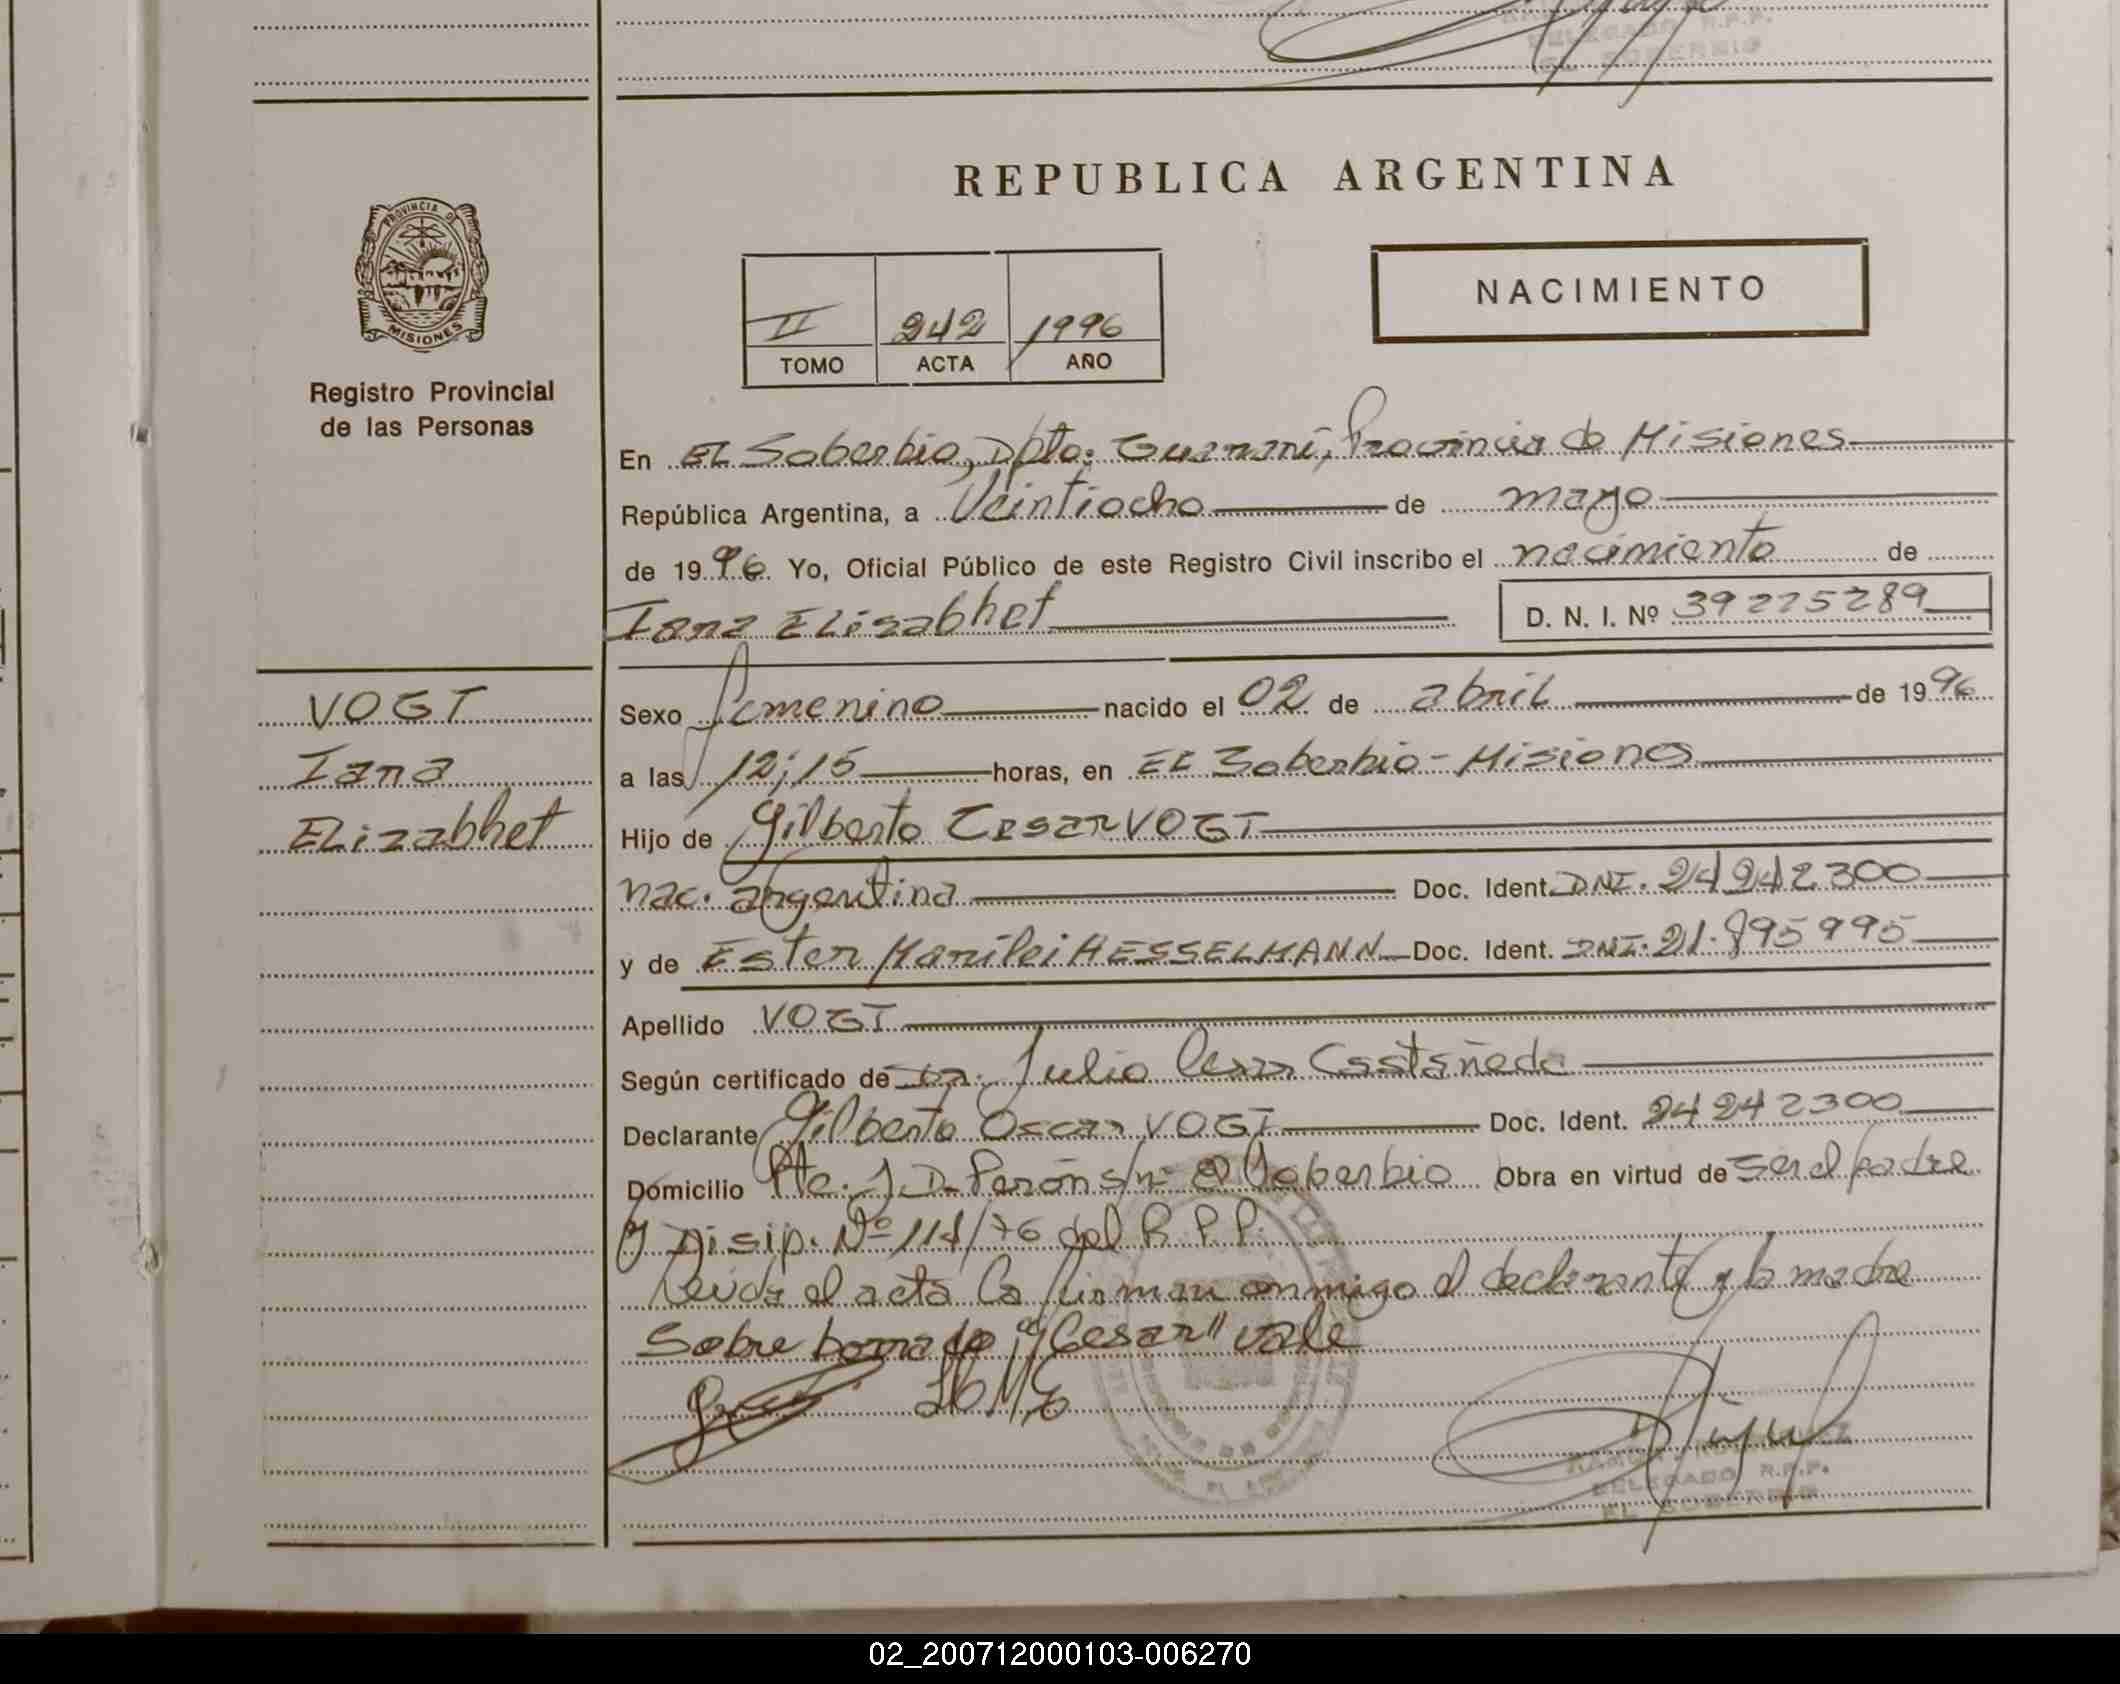 DELEGADO R.P.P.
EL SOBERBIO
PROVINCIA DE
MISIONES
Registro Provincial
de las Personas
REPUBLICA ARGENTINA
NACIMIENTO
II 242 1996
TOMO ACTA AÑO
En EL Soberbio, Dpto: Guaraní, Provincia de Misiones
República Argentina, a Veintiocho de mayo
de 1996 Yo, Oficial Público de este Registro Civil inscribo el nacimiento de
Iana ELisabhet D. N. I. Nº 39225289
VOGT
Iana
ELizabhet
Sexo femenino nacido el 02 de abril de 1996
a las 12;15 horas, en EL Soberbio - Misiones
Hijo de Gilberto Cesar VOGT
nac. argentina Doc. Ident. DNI. 24242300
y de Ester Marilei HESSELMANN Doc. Ident. DNI. 21.895995
Apellido VOGT
Según certificado de Dr. Julio Cesar Castañeda
Declarante Gilberto Oscar VOGT Doc. Ident. 24242300
Domicilio Pte. J.D. Perón s/nº El Soberbio Obra en virtud de ser el padre
y Disip. Nº 114/76 del R.P.P.
Leida el acta la firman conmigo el declarante y la madre
Sobre borrado "Cesar" vale
DELEGADO R.P.P.
EL SOBERBIO
02_200712000103-006270